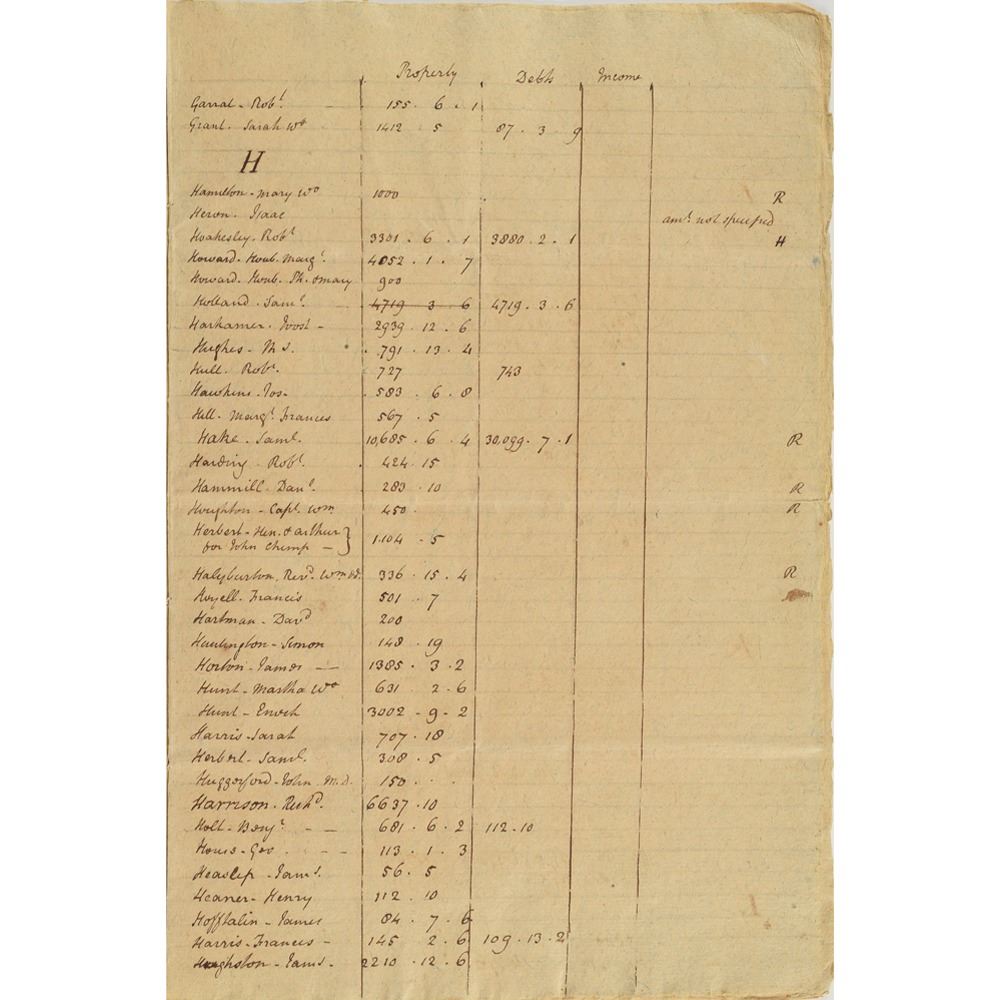 Property Debts Income
Garrat - Robt. 155 . 6 . 1
Grant. Sarah Wo 1412 . 5 87 . 3 . 9
H
Hamilton - Mary Wo 1000 R
Heron. Isaac amt. not specified
Hoakesley. Robt 3301 . 6 . 1 3880 . 2 . 1 H
Howard. Houb. Margt. 4052 . 1 . 7
Howard. Houb. Th. & Mary 900
Holland. Saml. 4719 3 6 4719 . 3 . 6
Harkamer. Joost - 2939 . 12 . 6
Hughes - Ths. 791 . 13 . 4
Hull. Robt. 727 743
Hawkins. Jos. 583 . 6 . 8
Hill. Margt. Frances 567 . 5
Hake. Saml. 10,685 . 6 . 4 30,099 . 7 . 1 R
Harding. Robt. 424 . 15
Hammill. Danl. 283 . 10 R
Houghton - Capt. Wm. 450 . R
Herbert - Hen. & Arthur }
for John Chump - 1104 - 5
Halyburton. Revd. Wm. 336 . 15 . 4 R
Hoyell. Francis 501 . 7
Hartman - Davd 200
Huntington - Simon 148 . 19
Horton - James - - 1385 . 3 . 2
Hunt - Martha Wo 631 2 . 6
Hunt - Enoch 3002 - 9 - 2
Harris - Sarah 707 . 18
Herbert. Saml. 308 . 5
Huggerford - John M.D. 150 . . .
Harrison. Richd. 6637 . 10
Holt - Benjn. - - 681 . 6 . 2 112 . 10
Hows - Geo - - 113 . 1 . 3
Heaslep - Jams. 56 . 5
Heaner - Henry 112 . 10
Hofftalin - James 84 . 7 . 6
Harris - Frances - 145 2 . 6 109 . 13 . 2
Houghston - Jams. 2210 . 12 . 6